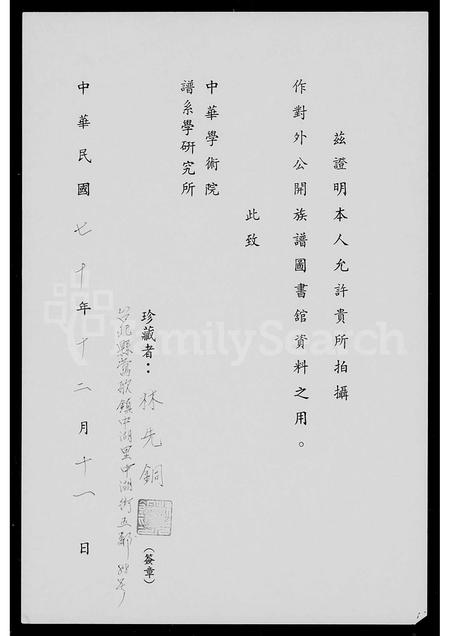 茲證明本人允許貴所拍攝
作對外公開族譜圖書館資料之用。
此致
中華學術院
譜系學研究所
珍藏者：林先銅（簽章）
台北縣鶯歌鎮中湖里中湖街五鄰88号
中華民國七十年十二月十一日
FamilySearch